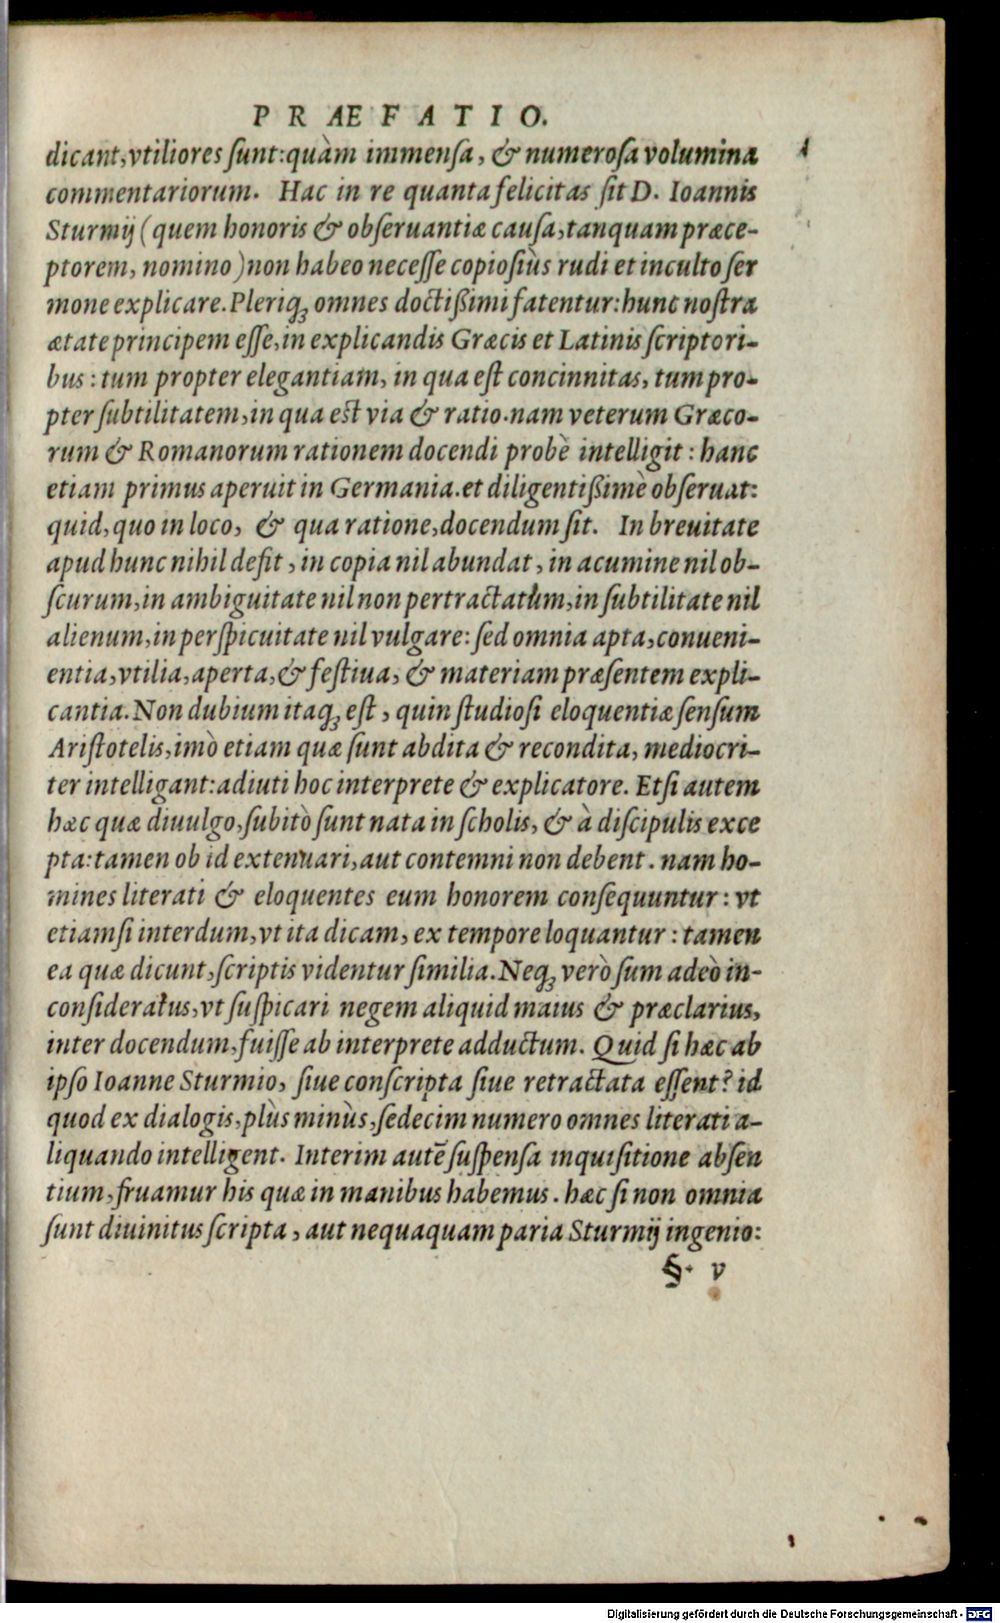 PRÆFATIO.
dicant, vtiliores ſunt: quàm immenſa, & numeroſa volumina
commentariorum. Hac in re quanta felicitas ſit D. Ioannis
Sturmij (quem honoris & obſeruantiæ cauſa, tanquam præce-
ptorem, nomino) non habeo neceſſe copioſiùs rudi et inculto ſer
mone explicare. Pleriqꝫ omnes doctißimi fatentur: hunc noſtra
ætate principem eſſe, in explicandis Græcis et Latinis ſcriptori-
bus: tum propter elegantiam, in qua eſt concinnitas, tum pro-
pter ſubtilitatem, in qua eſt via & ratio. nam veterum Græco-
rum & Romanorum rationem docendi probè intelligit: hanc
etiam primus aperuit in Germania. et diligentißimè obſeruat:
quid, quo in loco, & qua ratione, docendum ſit. In breuitate
apud hunc nihil deſit, in copia nil abundat, in acumine nil ob-
ſcurum, in ambiguitate nil non pertractatum, in ſubtilitate nil
alienum, in perſpicuitate nil vulgare: ſed omnia apta, conueni-
entia, vtilia, aperta, & feſtiua, & materiam præſentem expli-
cantia. Non dubium itaqꝫ eſt, quin ſtudioſi eloquentiæ ſenſum
Ariſtotelis, imò etiam quæ ſunt abdita & recondita, mediocri-
ter intelligant: adiuti hoc interprete & explicatore. Etſi autem
hæc quæ diuulgo, ſubitò ſunt nata in ſcholis, & à diſcipulis exce
pta: tamen ob id extenuari, aut contemni non debent. nam ho-
mines literati & eloquentes eum honorem conſequuntur: vt
etiamſi interdum, vt ita dicam, ex tempore loquantur: tamen
ea quæ dicunt, ſcriptis videntur ſimilia. Neqꝫ verò ſum adeò in-
conſideratus, vt ſuſpicari negem aliquid maius & præclarius,
inter docendum, fuiſſe ab interprete adductum. Quid ſi hæc ab
ipſo Ioanne Sturmio, ſiue conſcripta ſiue retractata eſſent? id
quod ex dialogis, plùs minùs, ſedecim numero omnes literati a-
liquando intelligent. Interim autē ſuſpenſa inquiſitione abſen
tium, fruamur his quæ in manibus habemus. hæc ſi non omnia
ſunt diuinitus ſcripta, aut nequaquam paria Sturmij ingenio:
§. v
Digitalisierung gefördert durch die Deutsche Forschungsgemeinschaft - DFG